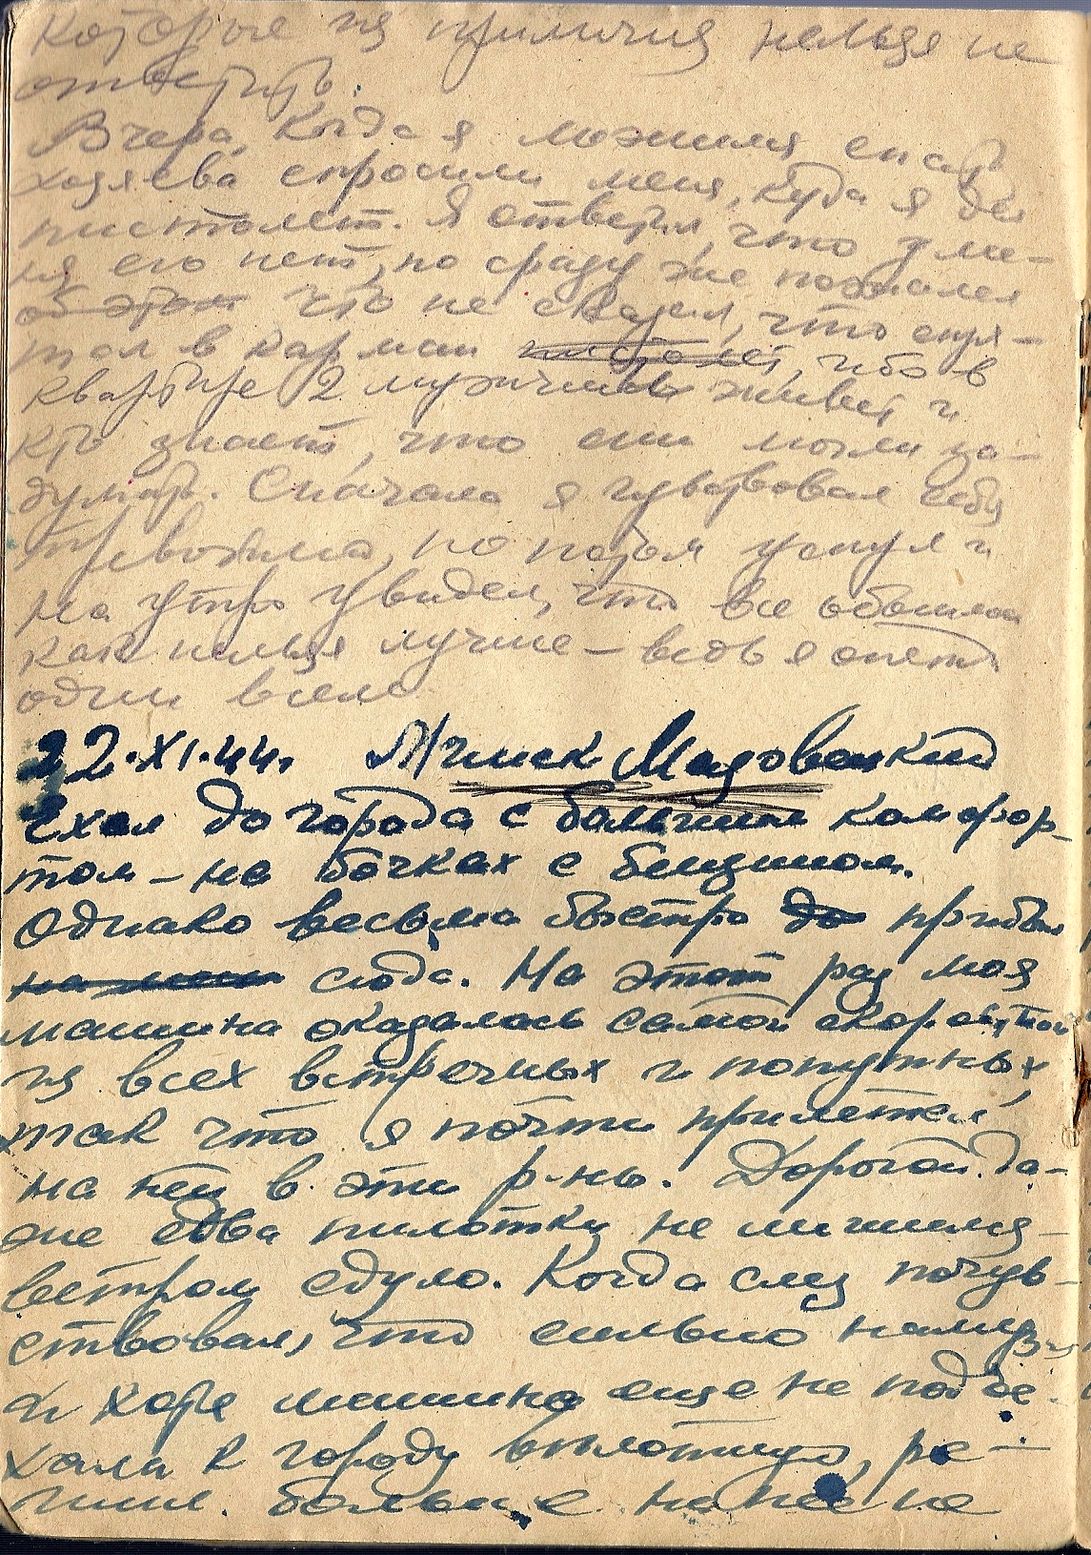 которые из приличия нельзя не
ответить.
Вчера, когда я ложился спать
хозяева спросили меня, куда я дел
пистолет. Я ответил, что у ме-
ня его нет, но сразу же пожалел
об этом что не сказал, что спря-
тал в карман пистолет, ибо в
квартире 2 мужчин живет и
кто знает, что они могли за-
думать. Сначала я чувствовал себя
тревожно, но потом уснул и
на утро увидел, что все обошлось
как нельзя лучше – ведь я опять
один
22.XI.44. Минск Мазовецкий
Ехал до города с большим комфор-
том – на бочках с бензином.
Однако весьма быстро до прибыл
сюда. На этот раз моя
машина оказалась самой скоростной
из всех встречных и попутных,
так что я почти прилетел
на ней в эти р-ны. Дорогой да-
же едва пилотки не лишился –
ветром сдуло. Когда слез почув-
ствовал, что сильно намерз
и хотя машина еще не подъе-
хала к городу вплотную, ре-
шил больше на нее не